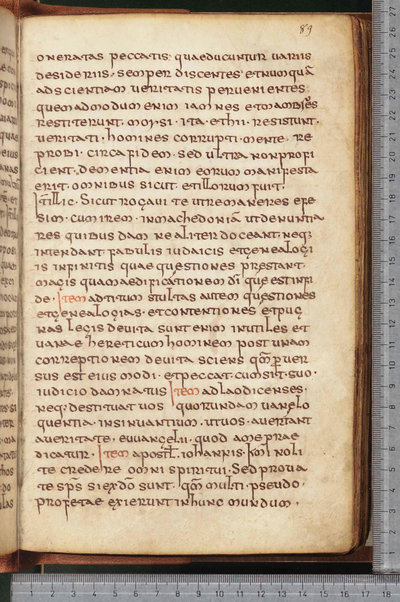 89
oneratas peccatis. quaeducuntur variis
desideriis. semper discentes. etnumquā
adscientiam veritatis pervenientes.
quemadmodum enim iamnes etmambres
restiterunt moysi. ita ethii. resistunt.
veritati. homines corrupti. mente. re
probi. circa fidem. sed ultra nonprofi
cient. dementia enim eorum manifesta
erit. omnibus sicut. etillorum fuit.
Sicut rogavi te utremaneres efe
si. cum irem. inmachedoniā. utdenuntia
res quibusdam nealiter doceant. neq;
intendant fabulis iudaicis etgenealogi
is infinitis quae questiones prestant.
magis quam aedificationem dī que est infi
de. Item adtitum stultas autem questiones
etgenealogias. etcontentiones etpug
nas legis devita sunt enim inutiles et
vanae hereticum hominem post unam
correptionem devita sciens qm̄ perver
sus est eius modi. etpeccat. cum sit. suo.
iudicio damnatus Item adlaodicenses.
neq; destituat vos quorundam vanelo
quentia. insinuantium. utvos. avertant
averitate. evvangelii. quod ame prae
dicatur. Item apostł. iohannis. kmī noli
te credere omni spiritui. Sed proua
te sp̄s si exdō sunt. qm̄ multi. pseudo
profetae exierunt inhunc mundum.